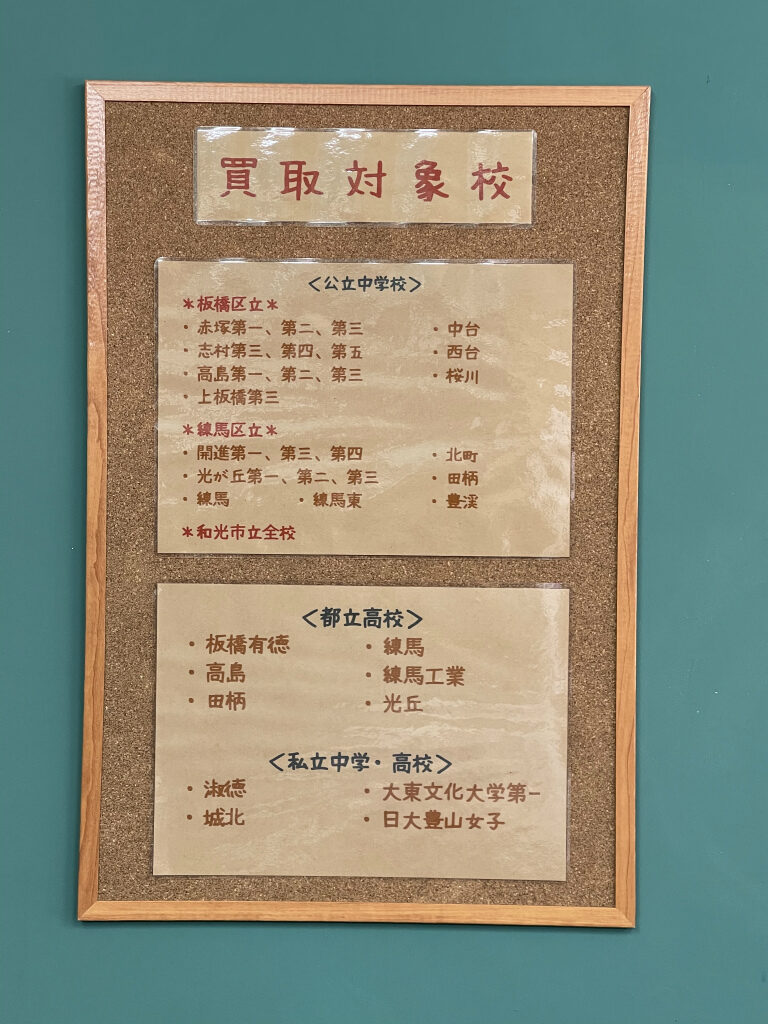 買取対象校
＜公立中学校＞
＊板橋区立＊
・赤塚第一、第二、第三 ・中台
・志村第三、第四、第五 ・西台
・高島第一、第二、第三 ・桜川
・上板橋第三
＊練馬区立＊
・開進第一、第三、第四 ・北町
・光が丘第一、第二、第三 ・田柄
・練馬 ・練馬東 ・豊渓
＊和光市立全校
＜都立高校＞
・板橋有徳 ・練馬
・高島 ・練馬工業
・田柄 ・光丘
＜私立中学・高校＞
・淑徳 ・大東文化大学第一
・城北 ・日大豊山女子